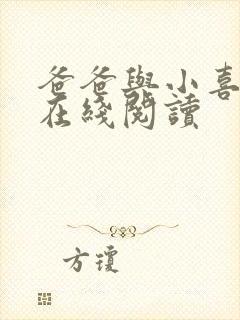 爸爸與小喜
在綫閱讀
方瓊